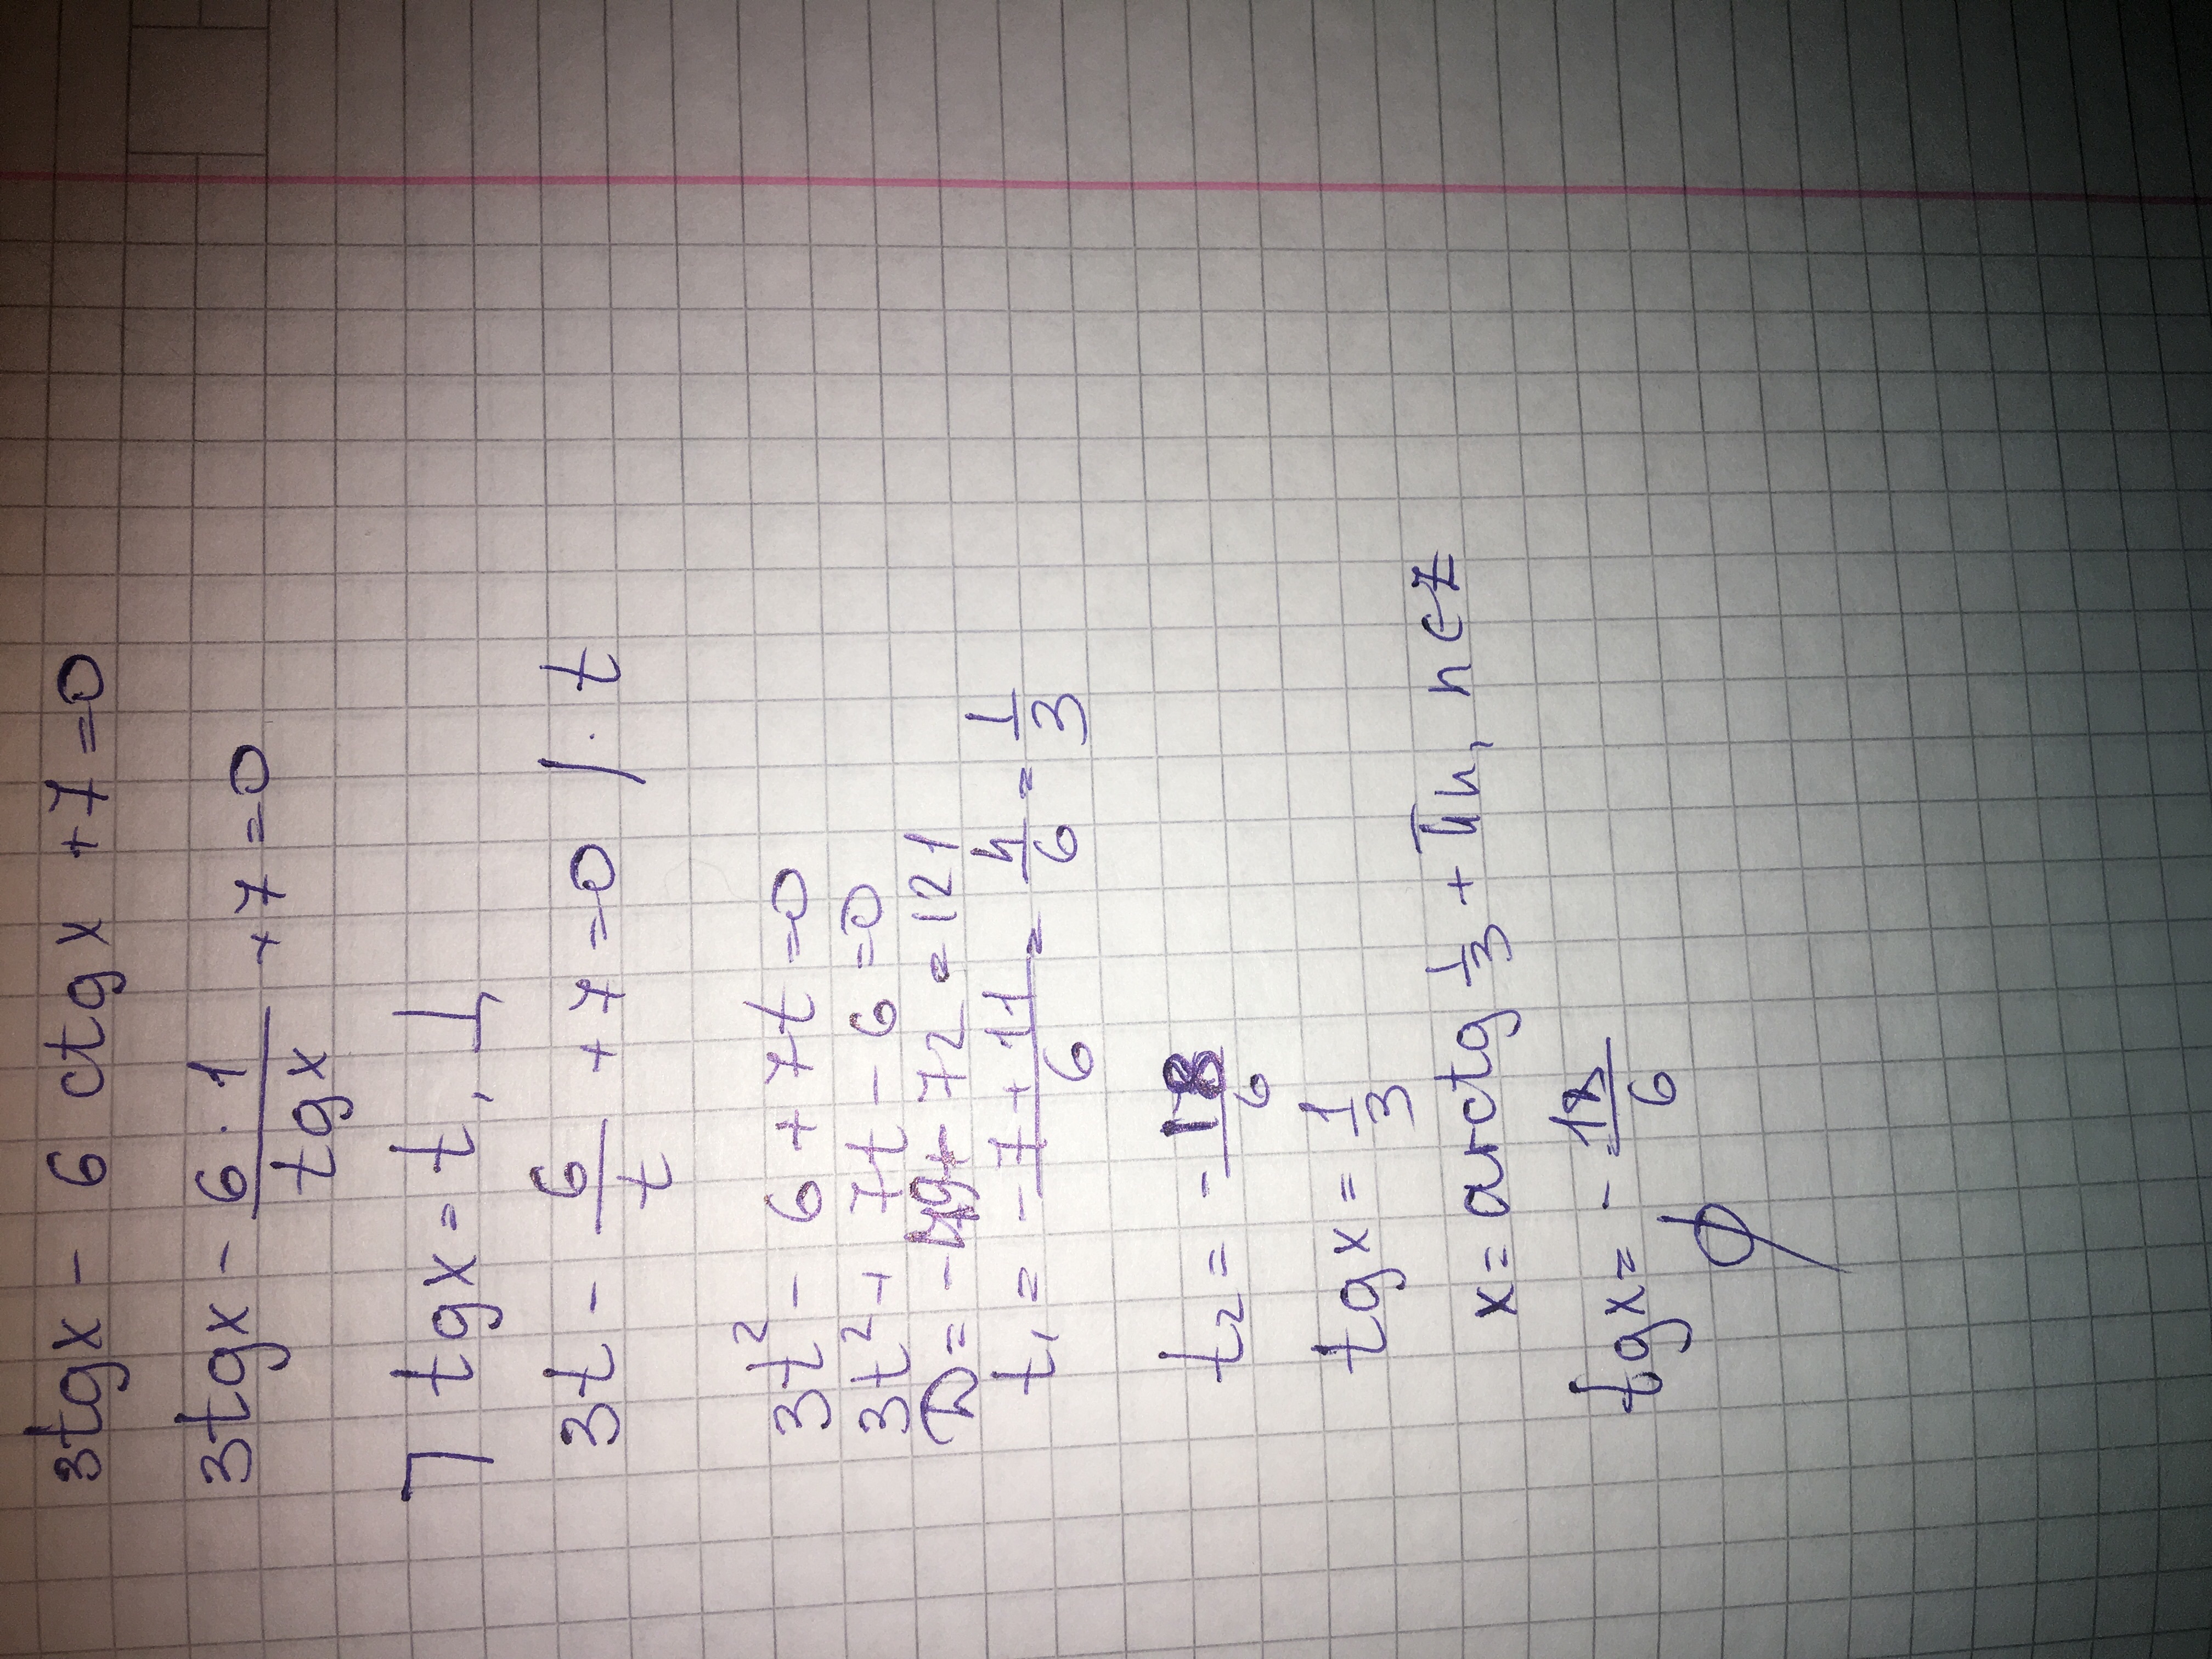 3tgx - 6 ctgx + 7 = 0
3tgx - \frac{6 · 1}{tgx} + 7 = 0
] tgx = t, ⊥
3t - \frac{6}{t} + 7 = 0 / · t
3t² - 6 + 7t = 0
3t² + 7t - 6 = 0
D = 72 = 121
t₁ = \frac{-7 + 11}{6} = \frac{4}{6} = \frac{1}{3}
t₂ = - \frac{18}{6}
tgx = \frac{1}{3}
x = arctg \frac{1}{3} + πn, n ∈ Z
tgx = - \frac{18}{6}
∅